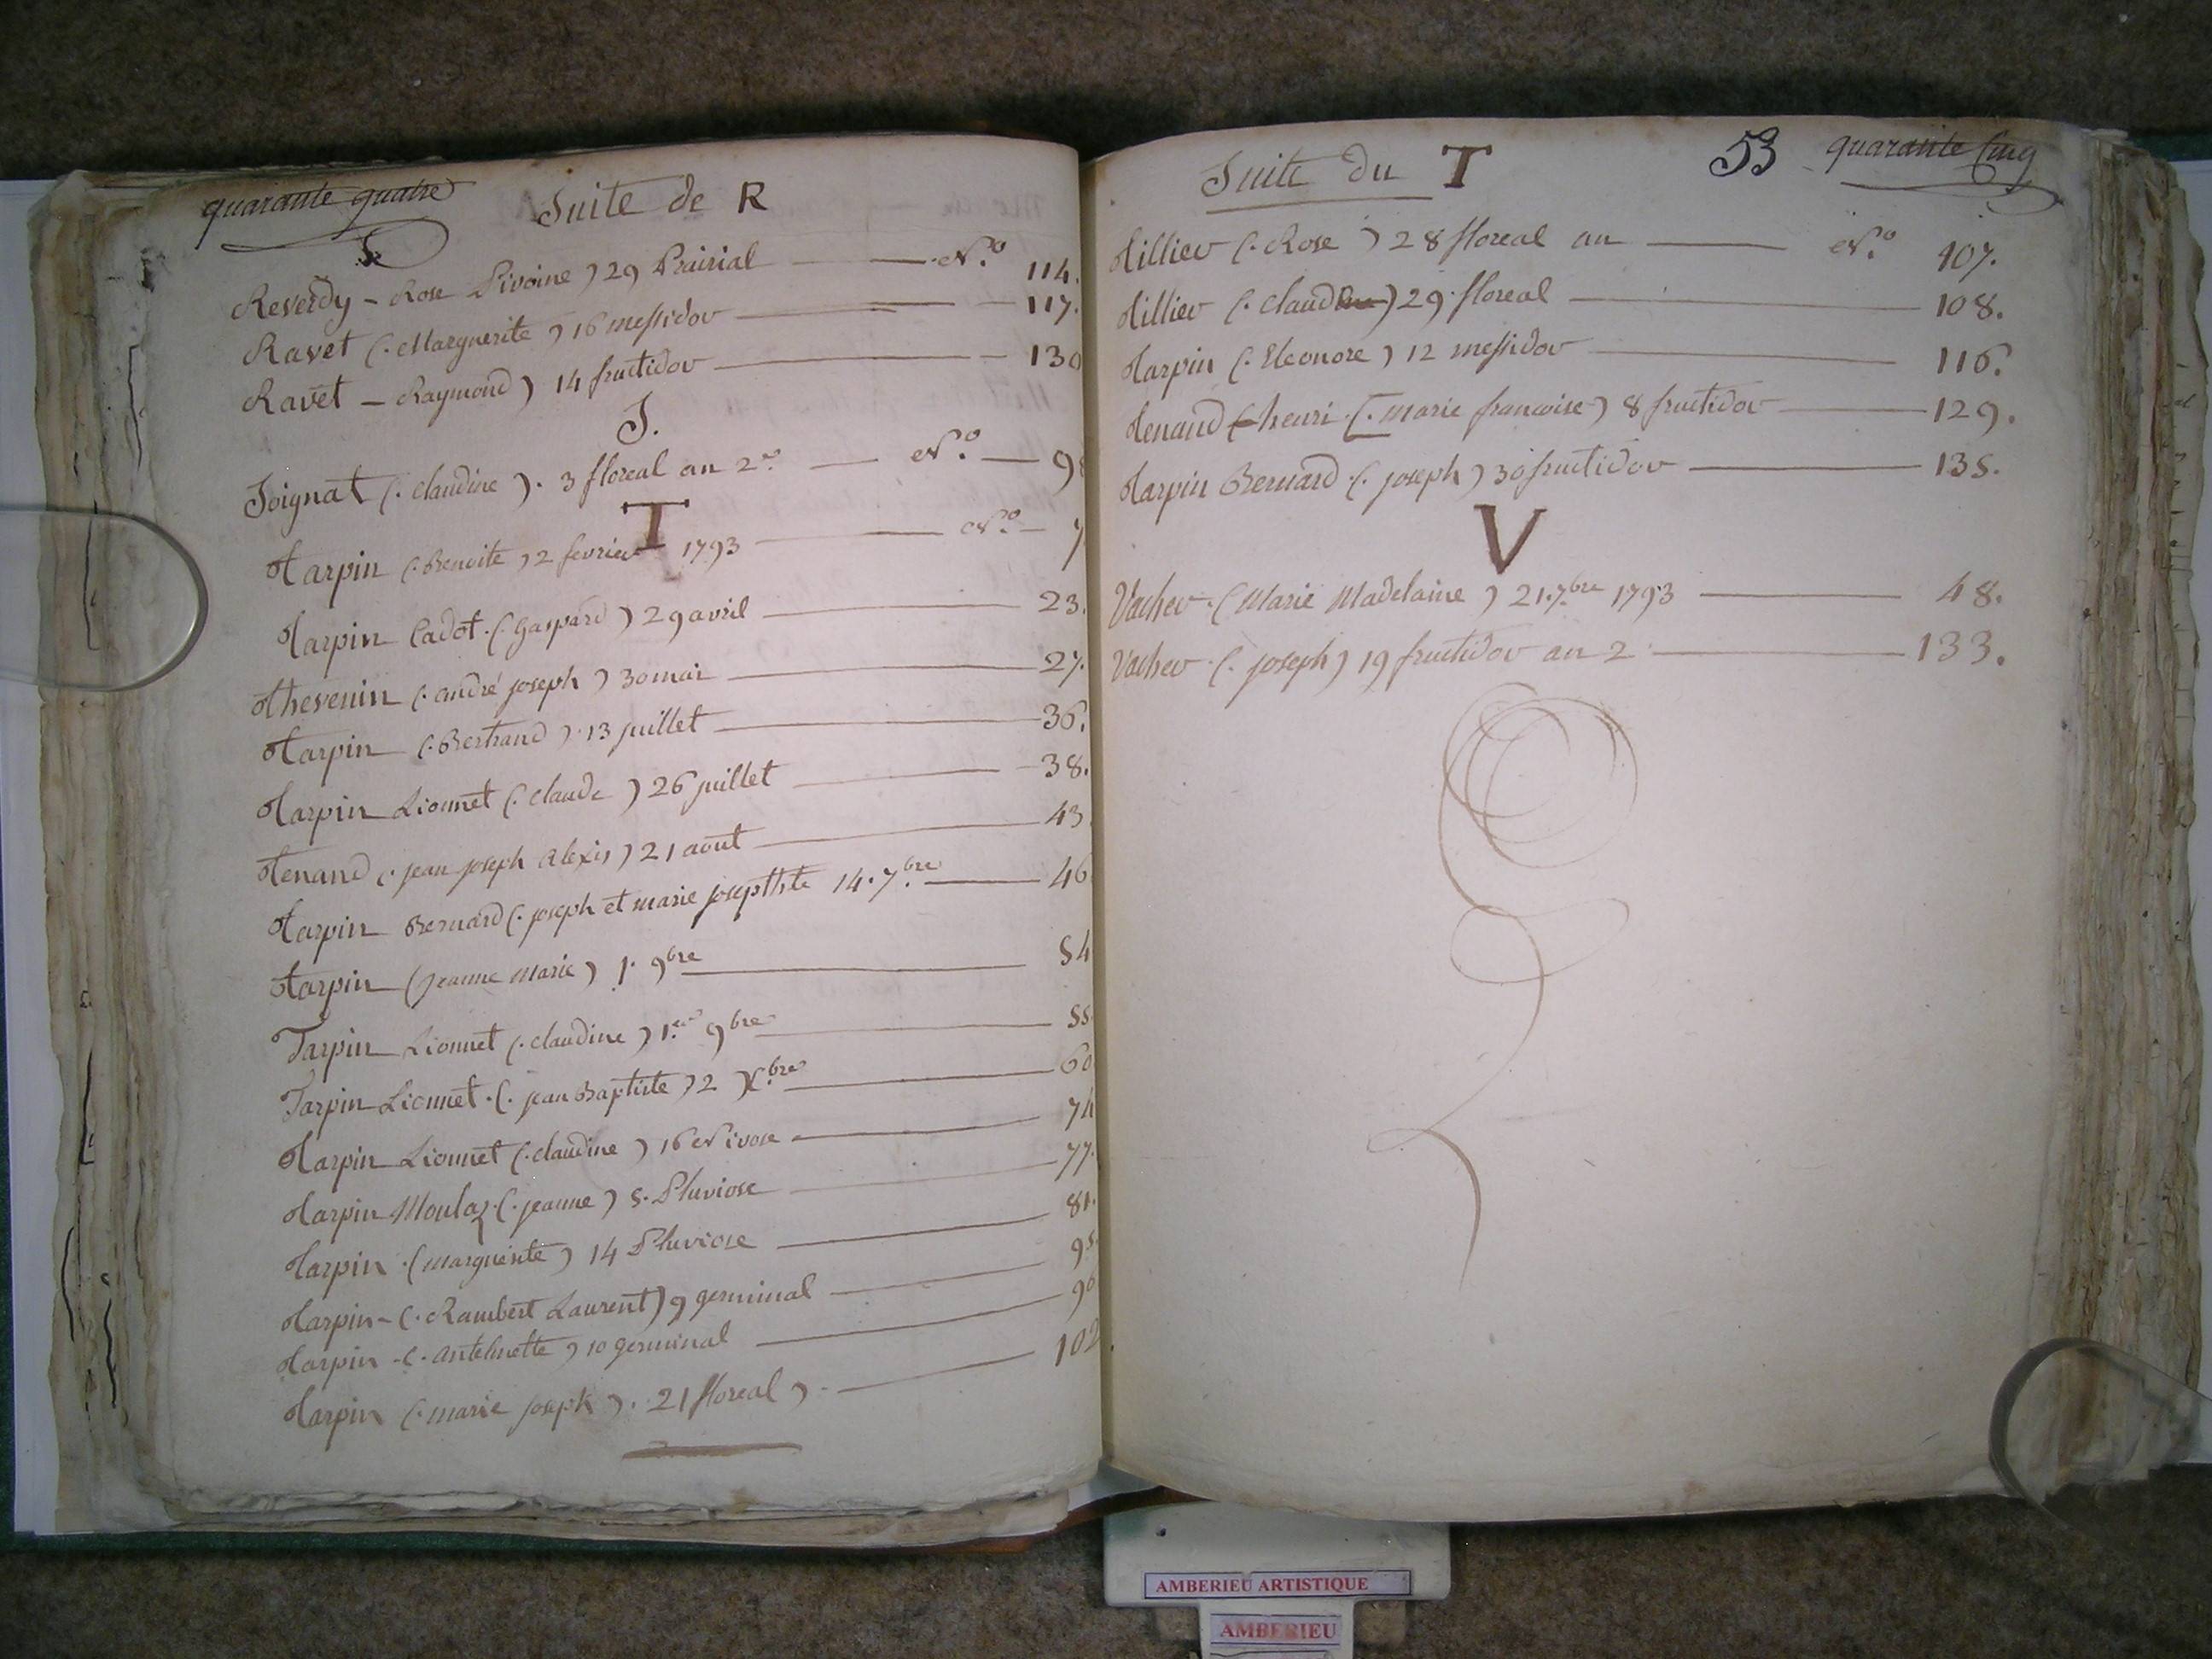 quarante quatre
Suite de R
Reverdy - Rose Pivoine ) 29 Prairial N.º 114.
Ravet (. Marguerite ) 16 messidor 117.
Ravet - Raymond ) 14 fructidor 130
S.
Soignat (. claudine ). 3 floreal an 2e N.º 98
T
Tarpin (. Benoite ) 2 fevrier 1793 N.º 7
Tarpin Cadot (. Gaspard ) 29 avril 23.
Thevenin (. andré joseph ) 30 mai 27.
Tarpin (. Bertrand ). 13 juillet 36.
Tarpin Lionnet (. claude ) 26 juillet 38.
Tenand (. jean joseph Alexis ) 21 aout 43
Tarpin Bernard (. joseph et marie josephte 14. 7.bre 46
Tarpin (Jeanne Marie ) 1. 9bre 54
Tarpin Lionnet (. claudine ) 1.er 9bre 55.
Tarpin Lionnet (. jean Baptiste ) 2 X.bre 60
Tarpin Lionnet (. claudine ) 16 Nivose 74
Tarpin Moulaz (. jeanne ) 5. Pluviose 77.
Tarpin (marguerite ) 14 Pluviose 81.
Tarpin - (. Rambert Laurent) 9 germinal 95.
Tarpin - (. Antelmette ) 10 germinal 96
Tarpin (. marie joseph ). 21 floreal ) 102
Suite du T
53 quarante Cinq
Tillier (. Rose ) 28 floreal an N.º 107.
Tillier (. claud ) 29 floreal 108.
Tarpin (. Eleonore ) 12 messidor 116.
Tenand henri (. marie francoise ) 8 fructidor 129.
Tarpin Bernard (. joseph ) 30 fructidor 135.
V
Vacher (Marie Madelaine ) 21. 7.bre 1793 48.
Vacher (. joseph) 19 fructidor an 2 133.
AMBERIEU ARTISTIQUE
AMBERIEU